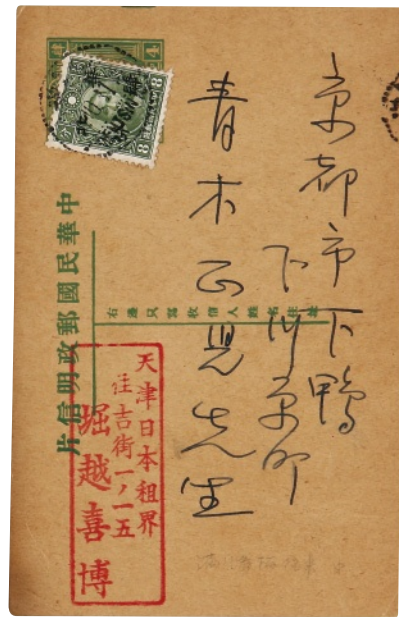 京都市下鴨
下川原町
青木正児先生
中華民國郵政明信片
右邊只寫收信人姓名住址
天津日本租界
住吉街一ノ一五
堀越喜博
4
8
8